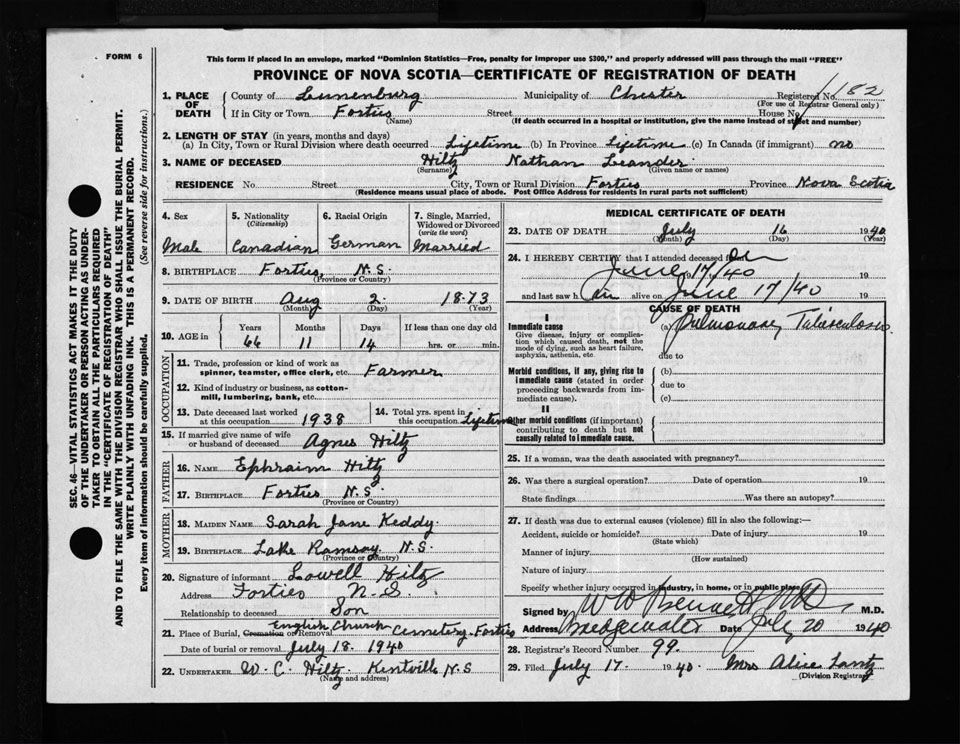 FORM 6
This form if placed in an envelope, marked "Dominion Statistics—Free, penalty for improper use $300," and properly addressed will pass through the mail "FREE"
PROVINCE OF NOVA SCOTIA—CERTIFICATE OF REGISTRATION OF DEATH
1. PLACE OF DEATH { County of Lunenburg Municipality of Chester Registered No. 1182
(For use of Registrar General only)
If in City or Town Forties Street House No.
(Name) (If death occurred in a hospital or institution, give the name instead of street and number)
2. LENGTH OF STAY (in years, months and days)
(a) In City, Town or Rural Division where death occurred Lifetime (b) In Province Lifetime (c) In Canada (if immigrant) no
3. NAME OF DECEASED Hiltz Nathan Leander
(Surname) (Given name or names)
RESIDENCE No. Street City, Town or Rural Division Forties Province Nova Scotia
(Residence means usual place of abode. Post Office Address for residents in rural parts not sufficient)
4. Sex 5. Nationality (Citizenship) 6. Racial Origin 7. Single, Married, Widowed or Divorced (write the word)
Male Canadian German Married
8. BIRTHPLACE Forties, N.S.
(Province or Country)
9. DATE OF BIRTH Aug 2. 1873
(Month) (Day) (Year)
10. AGE in { Years Months Days If less than one day old
66 11 14 hrs. or min.
OCCUPATION
11. Trade, profession or kind of work as spinner, teamster, office clerk, etc. Farmer
12. Kind of industry or business, as cotton-mill, lumbering, bank, etc.
13. Date deceased last worked at this occupation 1938 14. Total yrs. spent in this occupation Lifetime
15. If married give name of wife or husband of deceased Agnes Hiltz
FATHER
16. NAME Ephraim Hiltz
17. BIRTHPLACE Forties N.S.
(Province or Country)
MOTHER
18. MAIDEN NAME Sarah Jane Keddy
19. BIRTHPLACE Lake Ramsay N.S.
(Province or Country)
20. Signature of informant Lowell Hiltz
Address Forties N.S.
Relationship to deceased Son
21. Place of Burial, Cremation or Removal English Church Cemetery Forties
Date of burial or removal July 18. 1940
22. UNDERTAKER W. C. Hiltz Kentville N.S
(Name and address)
MEDICAL CERTIFICATE OF DEATH
23. DATE OF DEATH July 16 1940
(Month) (Day) (Year)
24. I HEREBY CERTIFY that I attended deceased from
June 17/40 19
and last saw him alive on June 17/40 19
CAUSE OF DEATH
I
Immediate cause (a) Pulmonary Tuberculosis
Give disease, injury or complication which caused death, not the mode of dying, such as heart failure, asphyxia, asthenia, etc. due to
Morbid conditions, if any, giving rise to immediate cause (stated in order proceeding backwards from immediate cause). (b)
due to
(c)
II
Other morbid conditions (if important) contributing to death but not causally related to immediate cause.
25. If a woman, was the death associated with pregnancy?
26. Was there a surgical operation? Date of operation 19
State findings Was there an autopsy?
27. If death was due to external causes (violence) fill in also the following:—
Accident, suicide or homicide? Date of injury 19
(State which)
Manner of injury
(How sustained)
Nature of injury
Specify whether injury occurred in industry, in home, or in public place
Signed by W W Bennett M.D.
Address Bridgewater Date July 20 1940
28. Registrar's Record Number 99.
29. Filed July 17 1940 Mrs Alice Lantz
(Division Registrar)
SEC. 46—VITAL STATISTICS ACT MAKES IT THE DUTY
OF THE UNDERTAKER OR PERSON ACTING AS UNDER-
TAKER TO OBTAIN ALL THE PARTICULARS REQUIRED
IN THE "CERTIFICATE OF REGISTRATION OF DEATH"
AND TO FILE THE SAME WITH THE DIVISION REGISTRAR WHO SHALL ISSUE THE BURIAL PERMIT.
WRITE PLAINLY WITH UNFADING INK. THIS IS A PERMANENT RECORD.
Every item of information should be carefully supplied. (See reverse side for instructions.)